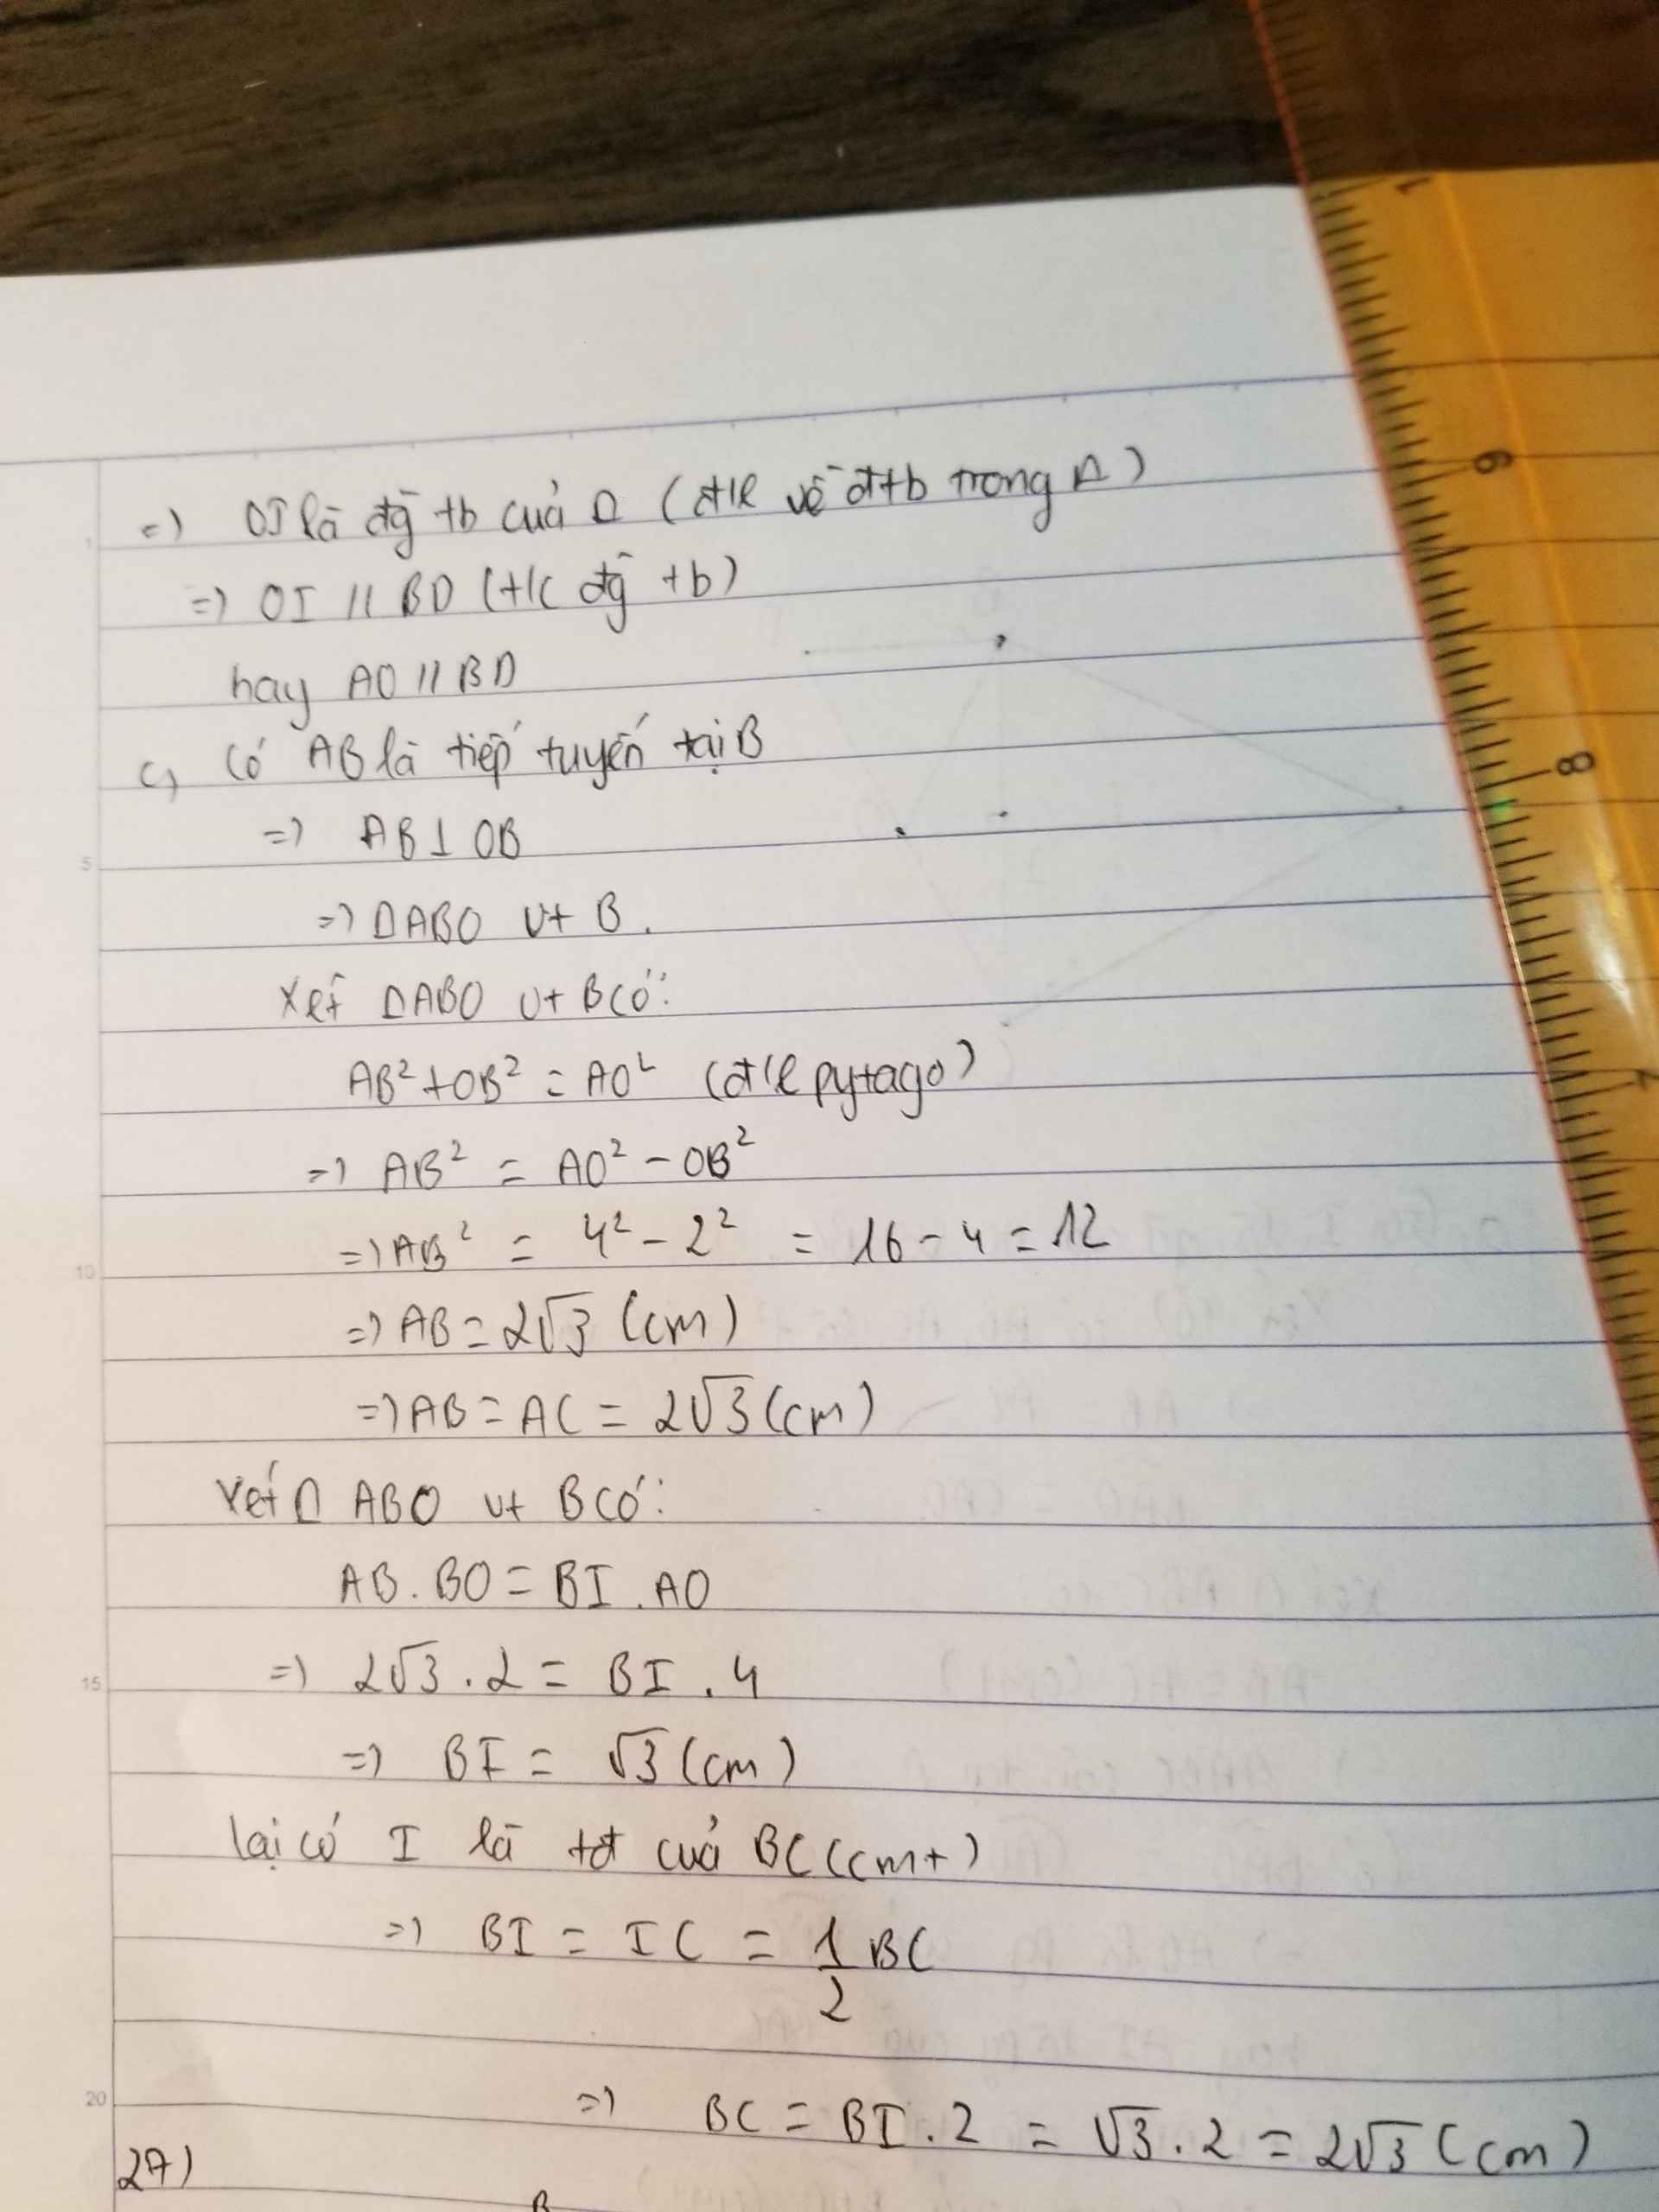 =) OI là đg tb của Δ (đ/l về đtb trong Δ)
=) OI // BD (t/c đg tb)
hay AO // BD
c, Có AB là tiếp tuyến tại B
=) AB ⊥ OB
=) ΔABO vt B.
Xét ΔABO vt B có:
AB² + OB² = AO² (đ/l pytago)
=) AB² = AO² - OB²
=) AB² = 4² - 2² = 16 - 4 = 12
=) AB = 2√3 (cm)
=) AB = AC = 2√3 (cm)
Xét Δ ABO vt B có:
AB . BO = BI . AO
=) 2√3 . 2 = BI . 4
=) BI = √3 (cm)
lại có I là tđ của BC (cmt)
=) BI = IC = 1/2 BC
=) BC = BI . 2 = √3 . 2 = 2√3 (cm)
27)
B
1
5
10
15
20
9
8
7